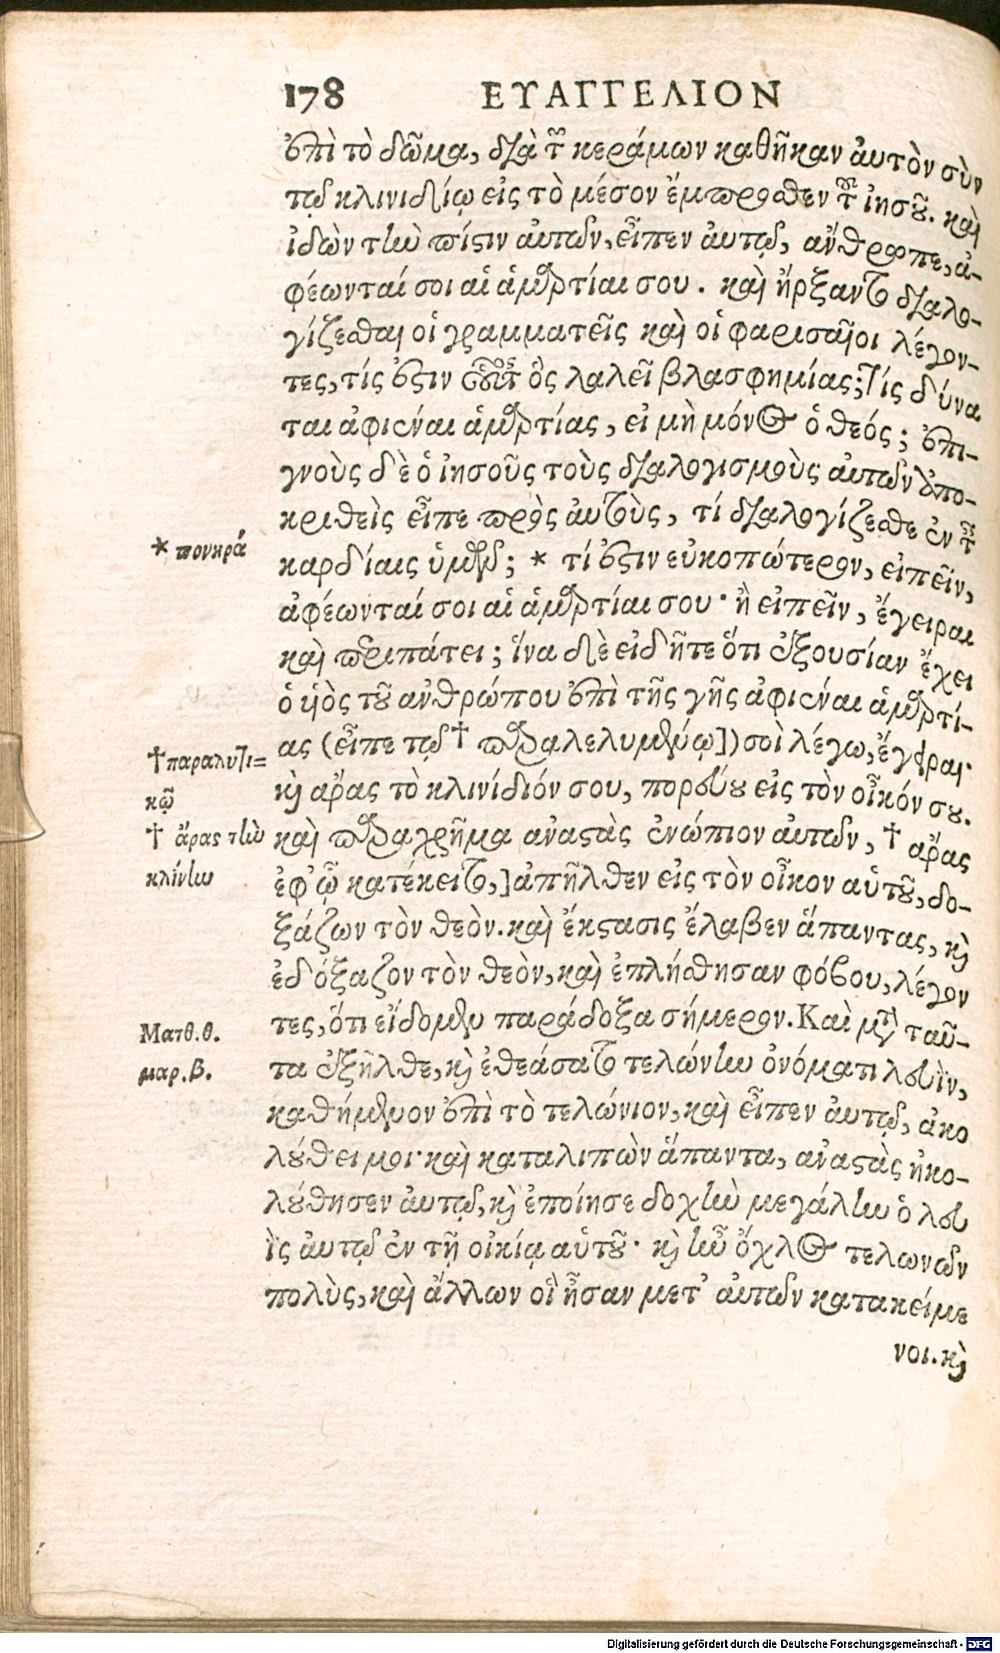 178 ΕΥΑΓΓΕΛΙΟΝ
ἐπὶ τὸ δῶμα, διὰ τῶν κεράμων καθῆκαν ἀυτὸν σὺν
τῷ κλινιδίῳ εἰς τὸ μέσον ἔμπροσθεν τοῦ ἰησοῦ. καὶ
ἰδὼν τὴν πίστιν ἀυτῶν, εἶπεν ἀυτῷ, ἄνθρωπε, ἀ-
φέωνταί σοι αἱ ἁμαρτίαι σου. καὶ ἤρξαντο διαλο-
γίζεσθαι οἱ γραμματεῖς καὶ οἱ φαρισαῖοι λέγον-
τες, τίς ἐστιν οὗτος ὃς λαλεῖ βλασφημίας; Τίς δύνα
ται ἀφιέναι ἁμαρτίας, εἰ μὴ μόνος ὁ θεός; ἐπι-
γνοὺς δὲ ὁ ἰησοῦς τοὺς διαλογισμοὺς ἀυτῶν ἀπο-
κριθεὶς εἶπε πρὸς ἀυτοὺς, τί διαλογίζεσθε ἐν ταῖς
* πονηρά
καρδίαις ὑμῶν; * τί ἐστιν εὐκοπώτερον, εἰπεῖν,
ἀφέωνταί σοι αἱ ἁμαρτίαι σου· ἢ εἰπεῖν, ἔγειραι
καὶ περιπάτει; ἵνα δὲ εἰδῆτε ὅτι ἐξουσίαν ἔχει
ὁ υἱὸς τοῦ ἀνθρώπου ἐπὶ τῆς γῆς ἀφιέναι ἁμαρτί-
ας (εἶπε τῷ † παραλελυμένῳ]) σοὶ λέγω, ἔγειραι·
† παραλυτι=
κῷ
καὶ ἄρας τὸ κλινίδιόν σου, πορεύου εἰς τὸν οἶκόν σου.
† ἄρας τὴν
κλίνην
καὶ παραχρῆμα ἀναστὰς ἐνώπιον ἀυτῶν, † ἄρας
ἐφ' ᾧ κατέκειτο,] ἀπῆλθεν εἰς τὸν οἶκον αὑτοῦ, δο-
ξάζων τὸν θεὸν. καὶ ἔκστασις ἔλαβεν ἅπαντας, καὶ
ἐδόξαζον τὸν θεὸν, καὶ ἐπλήσθησαν φόβου, λέγον
τες, ὅτι εἴδομεν παράδοξα σήμερον. Καὶ μετὰ ταῦ-
Ματθ. θ.
μαρ. β.
τα ἐξῆλθε, καὶ ἐθεάσατο τελώνην ὀνόματι λευῒν,
καθήμενον ἐπὶ τὸ τελώνιον, καὶ εἶπεν ἀυτῷ, ἀκο
λούθει μοι· καὶ καταλιπὼν ἅπαντα, ἀναστὰς ἠκο-
λούθησεν ἀυτῷ, καὶ ἐποίησε δοχὴν μεγάλην ὁ λευ
ῒς ἀυτῷ ἐν τῇ οἰκίᾳ αὑτοῦ· καὶ ἦν ὄχλος τελωνῶν
πολὺς, καὶ ἄλλων οἳ ἦσαν μετ' ἀυτῶν κατακείμε
νοι. καὶ
Digitalisierung gefördert durch die Deutsche Forschungsgemeinschaft - DFG